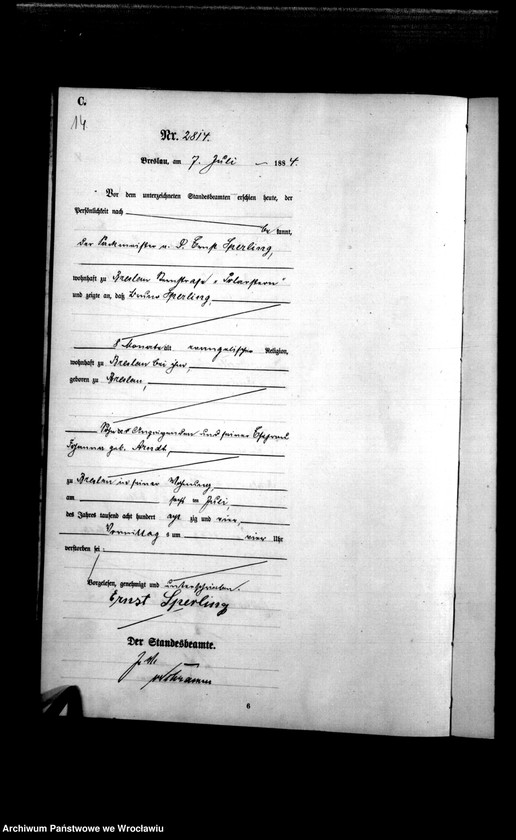 C.
14.
Nr. 2814.
Breslau, am 7. Juli 1884.
Vor dem unterzeichneten Standesbeamten erschien heute, der
Persönlichkeit nach
be kannt,
der Packmeister a. D. Ernst Sperling,
wohnhaft zu Breslau "Polarstern"
und zeigte an, daß Bruno Sperling,
8 Monate alt evangelischer Religion,
wohnhaft zu Breslau bei ihm,
geboren zu Breslau,
Sohn des Anzeigenden und seiner Ehefrau
Johanna geb. Arndt,
zu Breslau in seiner Wohnung,
am sechsten Juli,
des Jahres tausend acht hundert acht zig und vier,
Vormittags um vier Uhr
verstorben sei.
Vorgelesen, genehmigt und unterschrieben.
Ernst Sperling
Der Standesbeamte.
6
Archiwum Państwowe we Wrocławiu